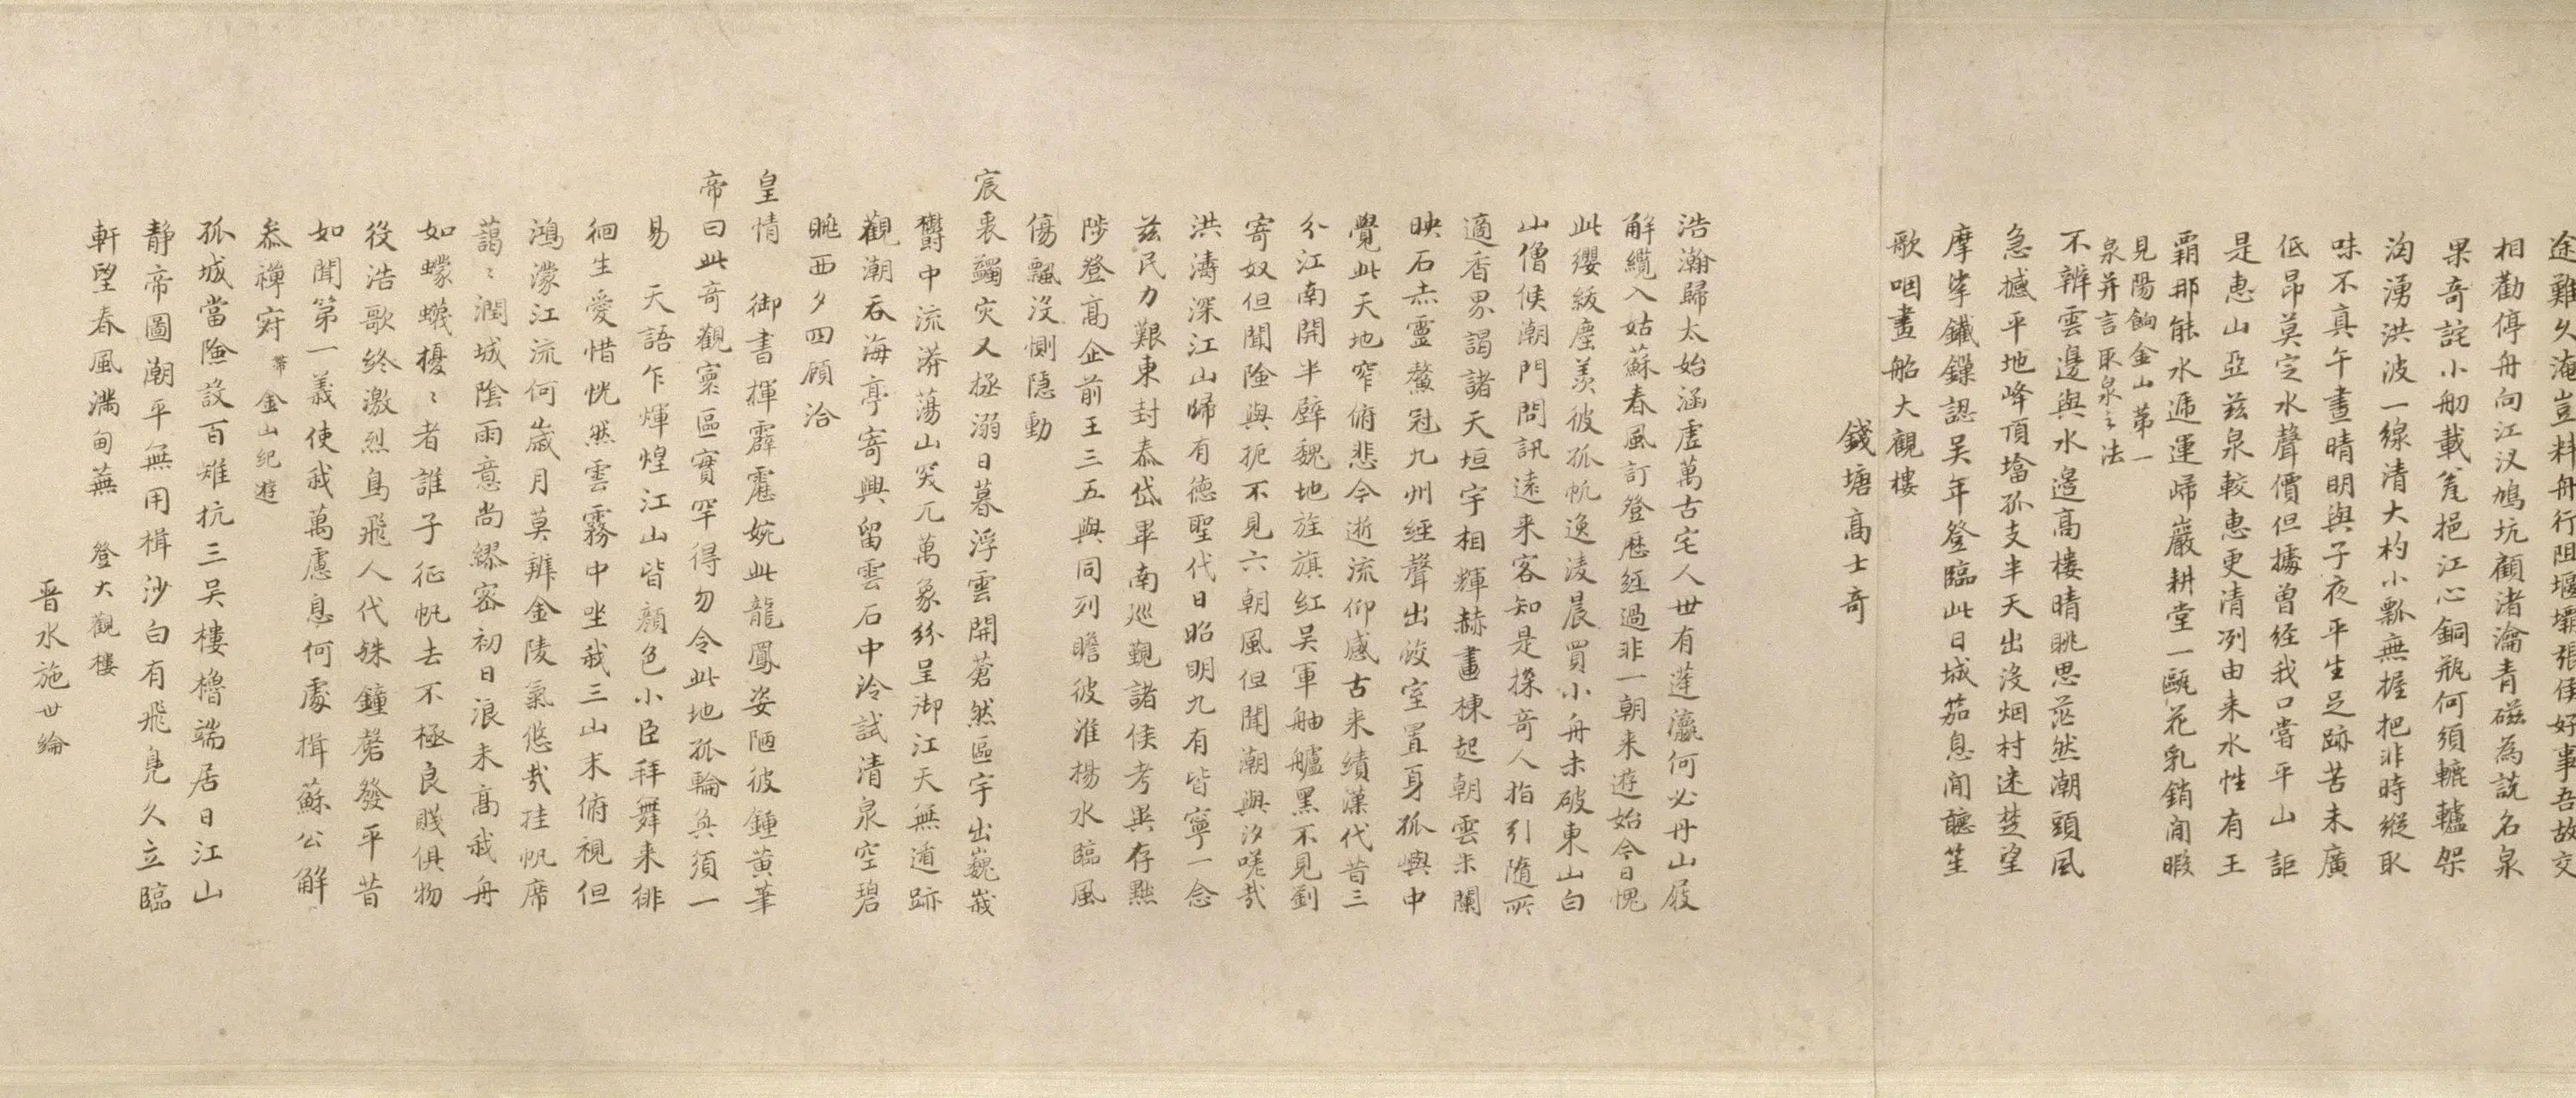 途難久淹豈料舟行阻堰壩張侯好事吾故交
相勸停舟向江汊鳩坑顧渚瀹青磁為說名泉
果奇詫小舠載瓮挹江心銅瓶何須轆轤架
洶湧洪波一線清大杓小瓢無握把非時縱取
味不真午晝晴明與子夜平生足跡苦未廣
低昂莫定水聲價但據曾經我口嘗平山詎
是惠山亞茲泉較惠更清冽由来水性有王
霸那能水遞運歸巖耕堂一甌花乳銷閒暇
見陽餉金山第一
泉并言取泉之法
不辨雲邊與水邊高樓晴眺思茫然潮頭風
急撼平地峰頂墖孤支半天出沒烟村迷楚望
摩挲鐵鏁認吴年登臨此日城笳息閒聽笙
歌咽畫船大觀樓
錢塘高士奇
浩瀚歸太始涵虛萬古宅人世有蓬瀛何必丹山屐
解纜入姑蘇春風訂登歷經過非一朝来遊始今日愧
此纓紱塵羨彼孤帆逸淩晨買小舟未破東山白
山僧候潮門問訊遠来客知是探奇人指引隨所
適香界謁諸天垣宇相輝赫畫棟起朝雲朱闌
映石赤靈鰲冠九州經聲出峻室置身孤嶼中
覺此天地窄俯悲今逝流仰感古来績漢代昔三
分江南開半壁魏地旌旗紅吴軍舳艫黑不見劉
寄奴但聞險與扼不見六朝風但聞潮與汐嗟哉
洪濤深江山歸有德聖代日昭明九有皆寧一念
茲民力艱東封泰岱畢南巡覲諸侯考異存黜
陟登高企前王三五與同列瞻彼淮揚水臨風
傷飄沒惻隱動
宸衷蠲灾又拯溺日暮浮雲開蒼然區宇出巍峩
欝中流漭蕩山突兀萬象紛呈御江天無遁跡
觀潮吞海亭寄興留雲石中泠試清泉空碧
眺西夕四顧洽
皇情 御書揮霹靂婉此龍鳳姿陋彼鍾黄筆
帝曰此奇觀寰區實罕得勿令此地孤輪奐須一
易 天語乍輝煌江山皆顏色小臣拜舞来徘
徊生愛惜恍然雲霧中坐我三山末俯視但
鴻濛江流何歲月莫辨金陵氣悠哉挂帆席
藹〻潤城陰雨意尚繆密初日浪未高我舟
如蠓蠛擾〻者誰子征帆去不極良賤俱物
役浩歌終激烈鳥飛人代殊鐘磬發平昔
如聞第一義使我萬慮息何處揖蘇公解
叅禪窟 帶 金山紀遊
孤城當險設百雉抗三吴樓櫓端居日江山
静帝圖潮平無用楫沙白有飛鳧久立臨
軒望春風滿甸蕪 登大觀樓
晋水施世綸